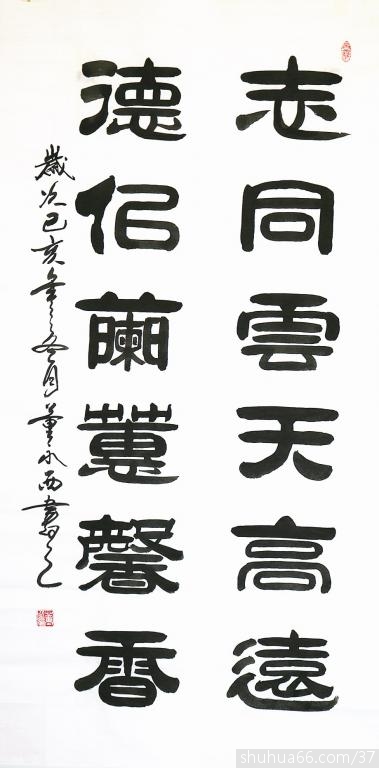 志同雲天高遠
德似蘭蕙馨香
歲次己亥年冬月董水西書之
shuhua66.com/37